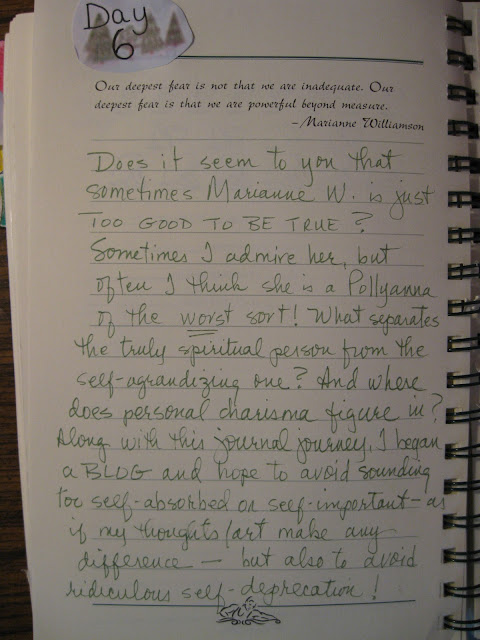 Day
6
Our deepest fear is not that we are inadequate. Our
deepest fear is that we are powerful beyond measure.
-Marianne Williamson
Does it seem to you that
sometimes Marianne W. is just
TOO GOOD TO BE TRUE?
Sometimes I admire her, but
often I think she is a Pollyanna
of the worst sort! What separates
the truly spiritual person from the
self-agrandizing one? And where
does personal charisma figure in?
Along with this journal journey, I began
a BLOG and hope to avoid sounding
too self-absorbed or self-important - as
if my thoughts/art make any
difference — but also to avoid
ridiculous self-deprecation!